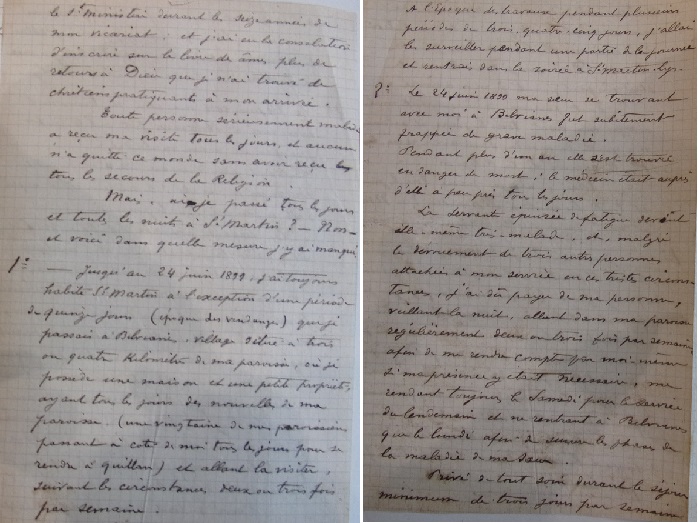 le St Ministère durant les seize années de
mon vicariat ; et j'ai eu la consolation
d'inscrire sur le livre de âmes plus de
retours à Dieu que je n'ai trouvé de
chrétiens pratiquants à mon arrivée.
Toute personne sérieusement malade
a reçu ma visite tous les jours, et aucune
n'a quitté ce monde sans avoir reçu
tous les secours de la Religion.
Mais, ai-je passé tous les jours
et toute les nuits à St Martin ? - Non -
et voici dans quelle mesure j'y ai manqué
1º - Jusqu'au 24 juin 1899, j'ai toujours
habité St Martin à l'exception d'une période
de quinze jours (époque des vendanges) que je
passais à Belvianes, village situé à trois
ou quatre Kilomètres de ma paroisse, où je
possède une maison et une petite propriété,
ayant tous les jours des nouvelles de ma
paroisse. (une vingtaine de mes paroissiens
passant à coté de moi tous les jours pour se
rendre à quillan) et allant la visiter,
suivant les circonstances deux ou trois fois
par semaine.
A l'époque des travaux pendant plusieurs
périodes de trois, quatre, cinq jours, j'allai
les surveiller pendant une partie de la journée
et rentrais dans la soirée à St Martin-Lys.
2º Le 24 juin 1899 ma sœur se trouvant
avec moi à Belvianes fut subitement
frappée de grave maladie.
Pendant plus d'un an elle s'est trouvée
en danger de mort ; le médecin était auprès
d'elle à peu près tous les jours.
La servant épuisée de fatigue devint
elle-même très malade, et, malgré
le dévouement de trois autres personnes
attachées à mon service en ces tristes circons-
tances, j'ai dû payer de ma personne,
veillant la nuit, allant dans ma paroisse
régulièrement deux ou trois fois par semaine
afin de me rendre compte par moi-même
si ma présence y était nécessaire, me
rendant toujours le Samedi pour le service
du lendemain et ne rentrant à Belvianes
que le lundi afin de suivre les phases de
la maladie de ma sœur.
Privé de tout soin durant le séjour
minimum de trois jours par semaine